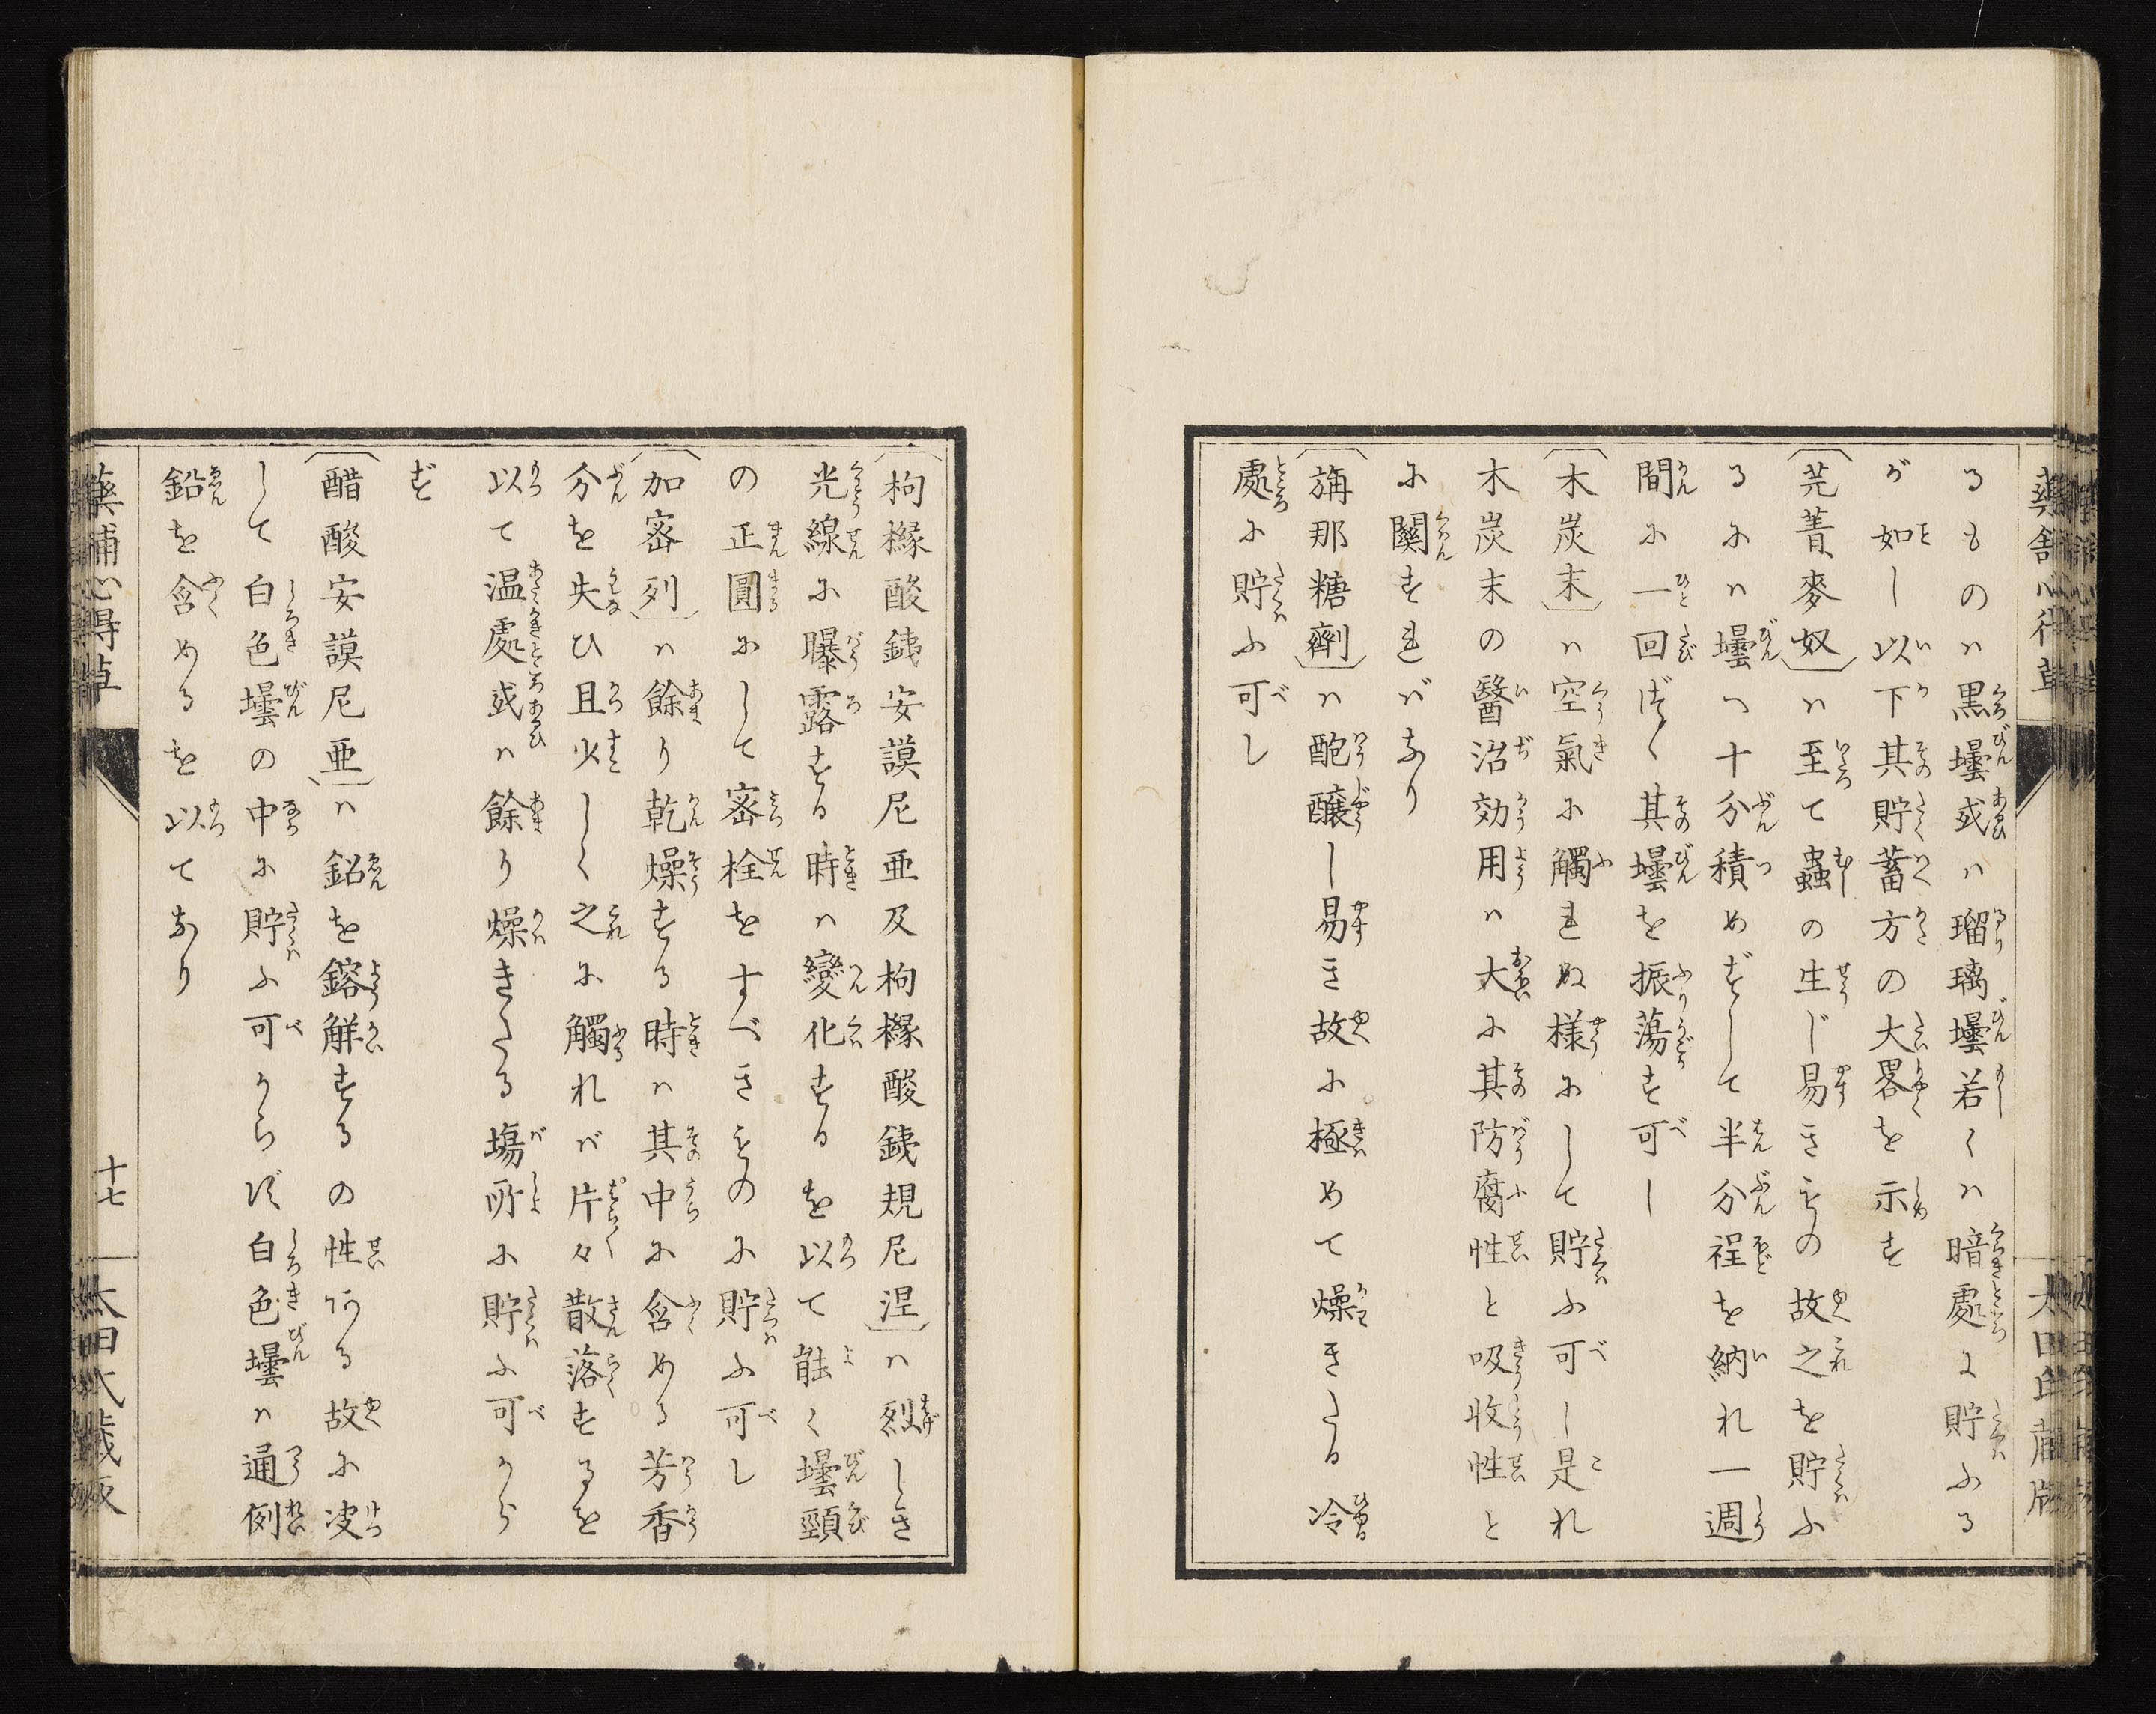 るものハ黒壜或ハ瑠璃壜若くハ暗處に貯ふる
が如し以下其貯蓄方の大畧を示す
〔芫菁、麥奴〕ハ至て蟲の生じ易きものゆ故之を貯ふ
るにハ壜へ十分積めずして半分程を納れ一週
間に一回づゝ其壜を振蕩す可し
〔木炭末〕ハ空氣に觸れぬ様にして貯ふ可し是れ
木炭末の醫治効用ハ大に其防腐性と吸收性と
に關すればなり
〔旃那糖劑〕ハ酕醸し易き故に極めて燥きたる冷
處に貯ふ可し
〔枸櫞酸銕安謨尼亜及枸櫞酸銕規尼涅〕ハ烈しき
光線に曝露する時ハ變化するを以て能く壜頸
の正圓にして密栓をすべきものに貯ふ可し
〔加密列〕ハ餘り乾燥する時ハ其中に含める芳香
分を失ひ且少しく之に觸れバ片々散落するを
以て温處或ハ餘り燥きたる塲所に貯ふ可から
ず
〔醋酸安謨尼亜〕ハ鉛を鎔解するの性ある故に决
して白色壜の中に貯ふ可からず白色壜ハ通例
鉛を含めるを以てなり
藥舗心得草
十七
太田氏藏版